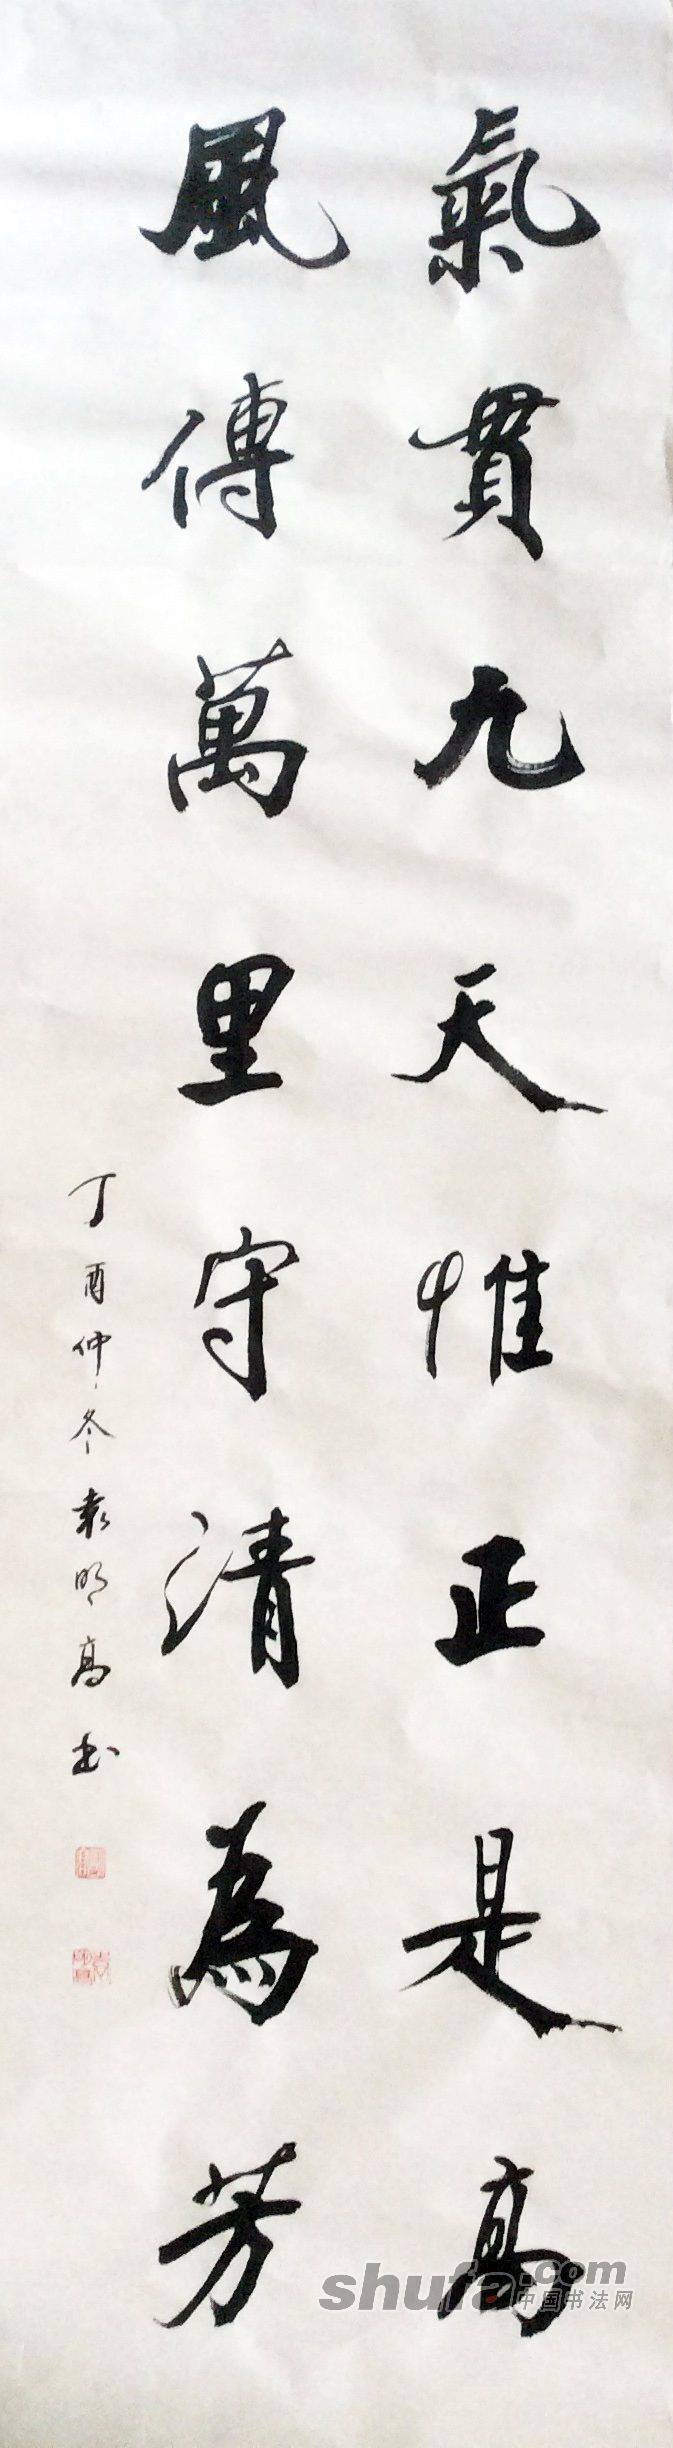 氣貫九天惟正是高
風傳萬里守清為芳
丁酉仲冬袁明高书
shufa.com
中国书法网